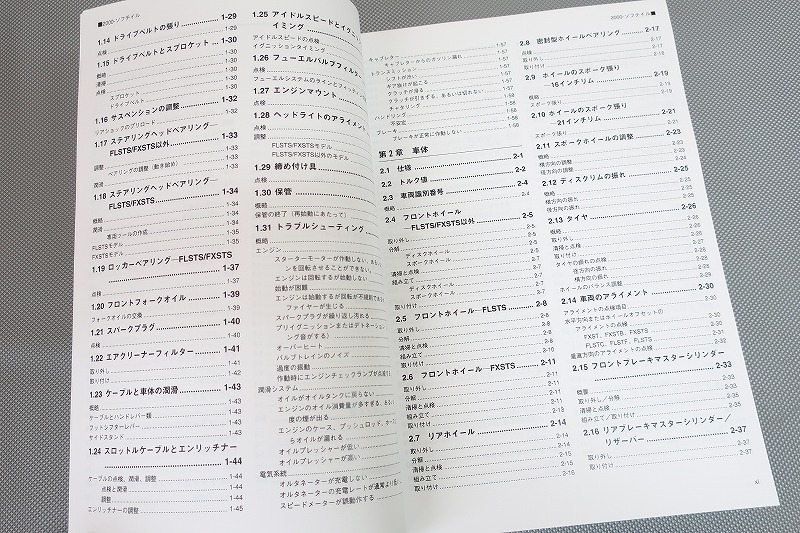 ■2000-ソフテイル
1.14 ドライブベルトの張り 1-29
点検 1-29
1.15 ドライブベルトとスプロケット 1-30
概略 1-30
清掃 1-30
点検 1-30
スプロケット 1-30
ドライブベルト 1-30
1.16 サスペンションの調整 1-32
リアショックのプリロード 1-32
1.17 ステアリングヘッドベアリング―
FLSTS/FXSTS以外 1-33
調整 1-33
ベアリングの調整（動き始め） 1-33
潤滑 1-33
1.18 ステアリングヘッドベアリング―
FLSTS/FXSTS 1-34
概略 1-34
潤滑 1-34
専用ツールの作成 1-34
FLSTSモデル 1-35
FXSTSモデル 1-35
1.19 ロッカーベアリング―FLSTS/FXSTS
1-37
点検 1-37
1.20 フロントフォークオイル 1-39
フォークオイルの交換 1-39
1.21 スパークプラグ 1-40
点検 1-40
1.22 エアクリーナーフィルター 1-41
取り外し 1-41
取り付け 1-42
1.23 ケーブルと車体の潤滑 1-43
概略 1-43
ケーブルとハンドレバー類 1-43
フットシフターレバー 1-43
サイドスタンド 1-43
1.24 スロットルケーブルとエンリッチナー
1-44
ケーブルの点検、潤滑、調整 1-44
点検と潤滑 1-44
調整 1-44
エンリッチナーの調整 1-45
1.25 アイドルスピードとイグニ
イミング
アイドルスピードの点検
イグニッションタイミング
1.26 フューエルバルブフィルタ
点検
フューエルシステムのラインとフィッティ
1.27 エンジンマウント
点検
1.28 ヘッドライトのアライメ
点検
調整
FLSTS/FXSTSのモデル
FLSTS/FXSTS以外のモデル
1.29 締め付け具
点検
1.30 保管
保管の終了（再始動にあたって）
1.31 トラブルシューティング
概略
エンジン
スターターモーターが作動しない、あるい
ンを回転させることができない
エンジンは回転するが始動しない
始動が困難
エンジンは始動するが回転が不規則であ
ファイヤーが生じる
スパークプラグが繰り返し汚れる
プリイグニッションまたはデトネーション
ング音がする）
オーバーヒート
バルブトレインのノイズ
過度の振動
作動時にエンジンチェックランプが点
潤滑システム
オイルがオイルタンクに戻らない
エンジンのオイル消費量が多すぎる、ある
度の煙が出る
エンジンのケース、プッシュロッド、ホー
らオイルが漏れる
オイルプレッシャーが低い
オイルプレッシャーが高い
電気系統
オルタネーターが充電しない
オルタネーターの充電レートが通常より
スピードメーターが誤動作する
2000-ソフテイル■
キャブレター 1-57
キャブレターからのガソリン漏れ 1-57
トランスミッション 1-57
シフトが渋い 1-57
ギア抜けが起こる 1-57
クラッチが滑る 1-57
クラッチが引きずる、あるいは切れない 1-58
チャタリング 1-58
ハンドリング 1-58
不安定 1-58
ブレーキ 1-58
ブレーキが正常に作動しない 1-58
第2章 車体
2.1 仕様 2-1
2.2 トルク値 2-2
2.3 車両識別番号 2-4
概略 2-4
2.4 フロントホイール
―FLSTS/FXSTS以外 2-5
取り外し 2-5
分解 2-5
ディスクホイール 2-5
スポークホイール 2-5
清掃と点検 2-7
組み立て 2-7
ディスクホイール 2-7
スポークホイール 2-7
取り付け 2-7
2.5 フロントホイール―FLSTS 2-8
取り外し 2-8
分解 2-8
清掃と点検 2-8
組み立て 2-8
取り付け 2-10
2.6 フロントホイール―FXSTS 2-11
取り外し 2-11
分解 2-11
清掃と点検 2-11
組み立て 2-11
取り付け 2-13
2.7 リアホイール 2-14
取り外し 2-14
分解 2-14
清掃と点検 2-15
組み立て 2-15
取り付け 2-16
2.8 密封型ホイールベアリング 2-17
点検 2-17
取り外し 2-17
取り付け 2-18
2.9 ホイールのスポーク張り
―16インチリム 2-19
概略 2-19
スポーク張り 2-19
2.10 ホイールのスポーク張り
―21インチリム 2-21
スポーク張り 2-21
2.11 スポークホイールの調整 2-23
概略 2-23
横方向の調整 2-23
径方向の調整 2-24
2.12 ディスクリムの振れ 2-25
概略 2-25
横方向の振れ 2-25
径方向の振れ 2-25
2.13 タイヤ 2-26
概略 2-26
取り外し 2-26
清掃と点検 2-26
取り付け 2-27
タイヤの振れの点検 2-28
径方向の振れ 2-28
横方向の振れ 2-28
ホイールのバランス調整 2-29
2.14 車両のアライメント 2-30
アライメントの点検項目 2-30
水平方向またはホイールオフセットの
アライメントの点検 2-30
FXST、FXSTB、FXSTS
FLSTC、FLSTF、FLSTS
垂直方向のアライメントの点検
2.15 フロントブレーキマスターシリンダー
2-33
概要 2-33
取り外し／分解 2-33
清掃と点検 2-35
組み立て／取り付け 2-35
2.16 リアブレーキマスターシリンダー／
リザーバー 2-37
取り外し 2-37
取り付け 2-37
xi